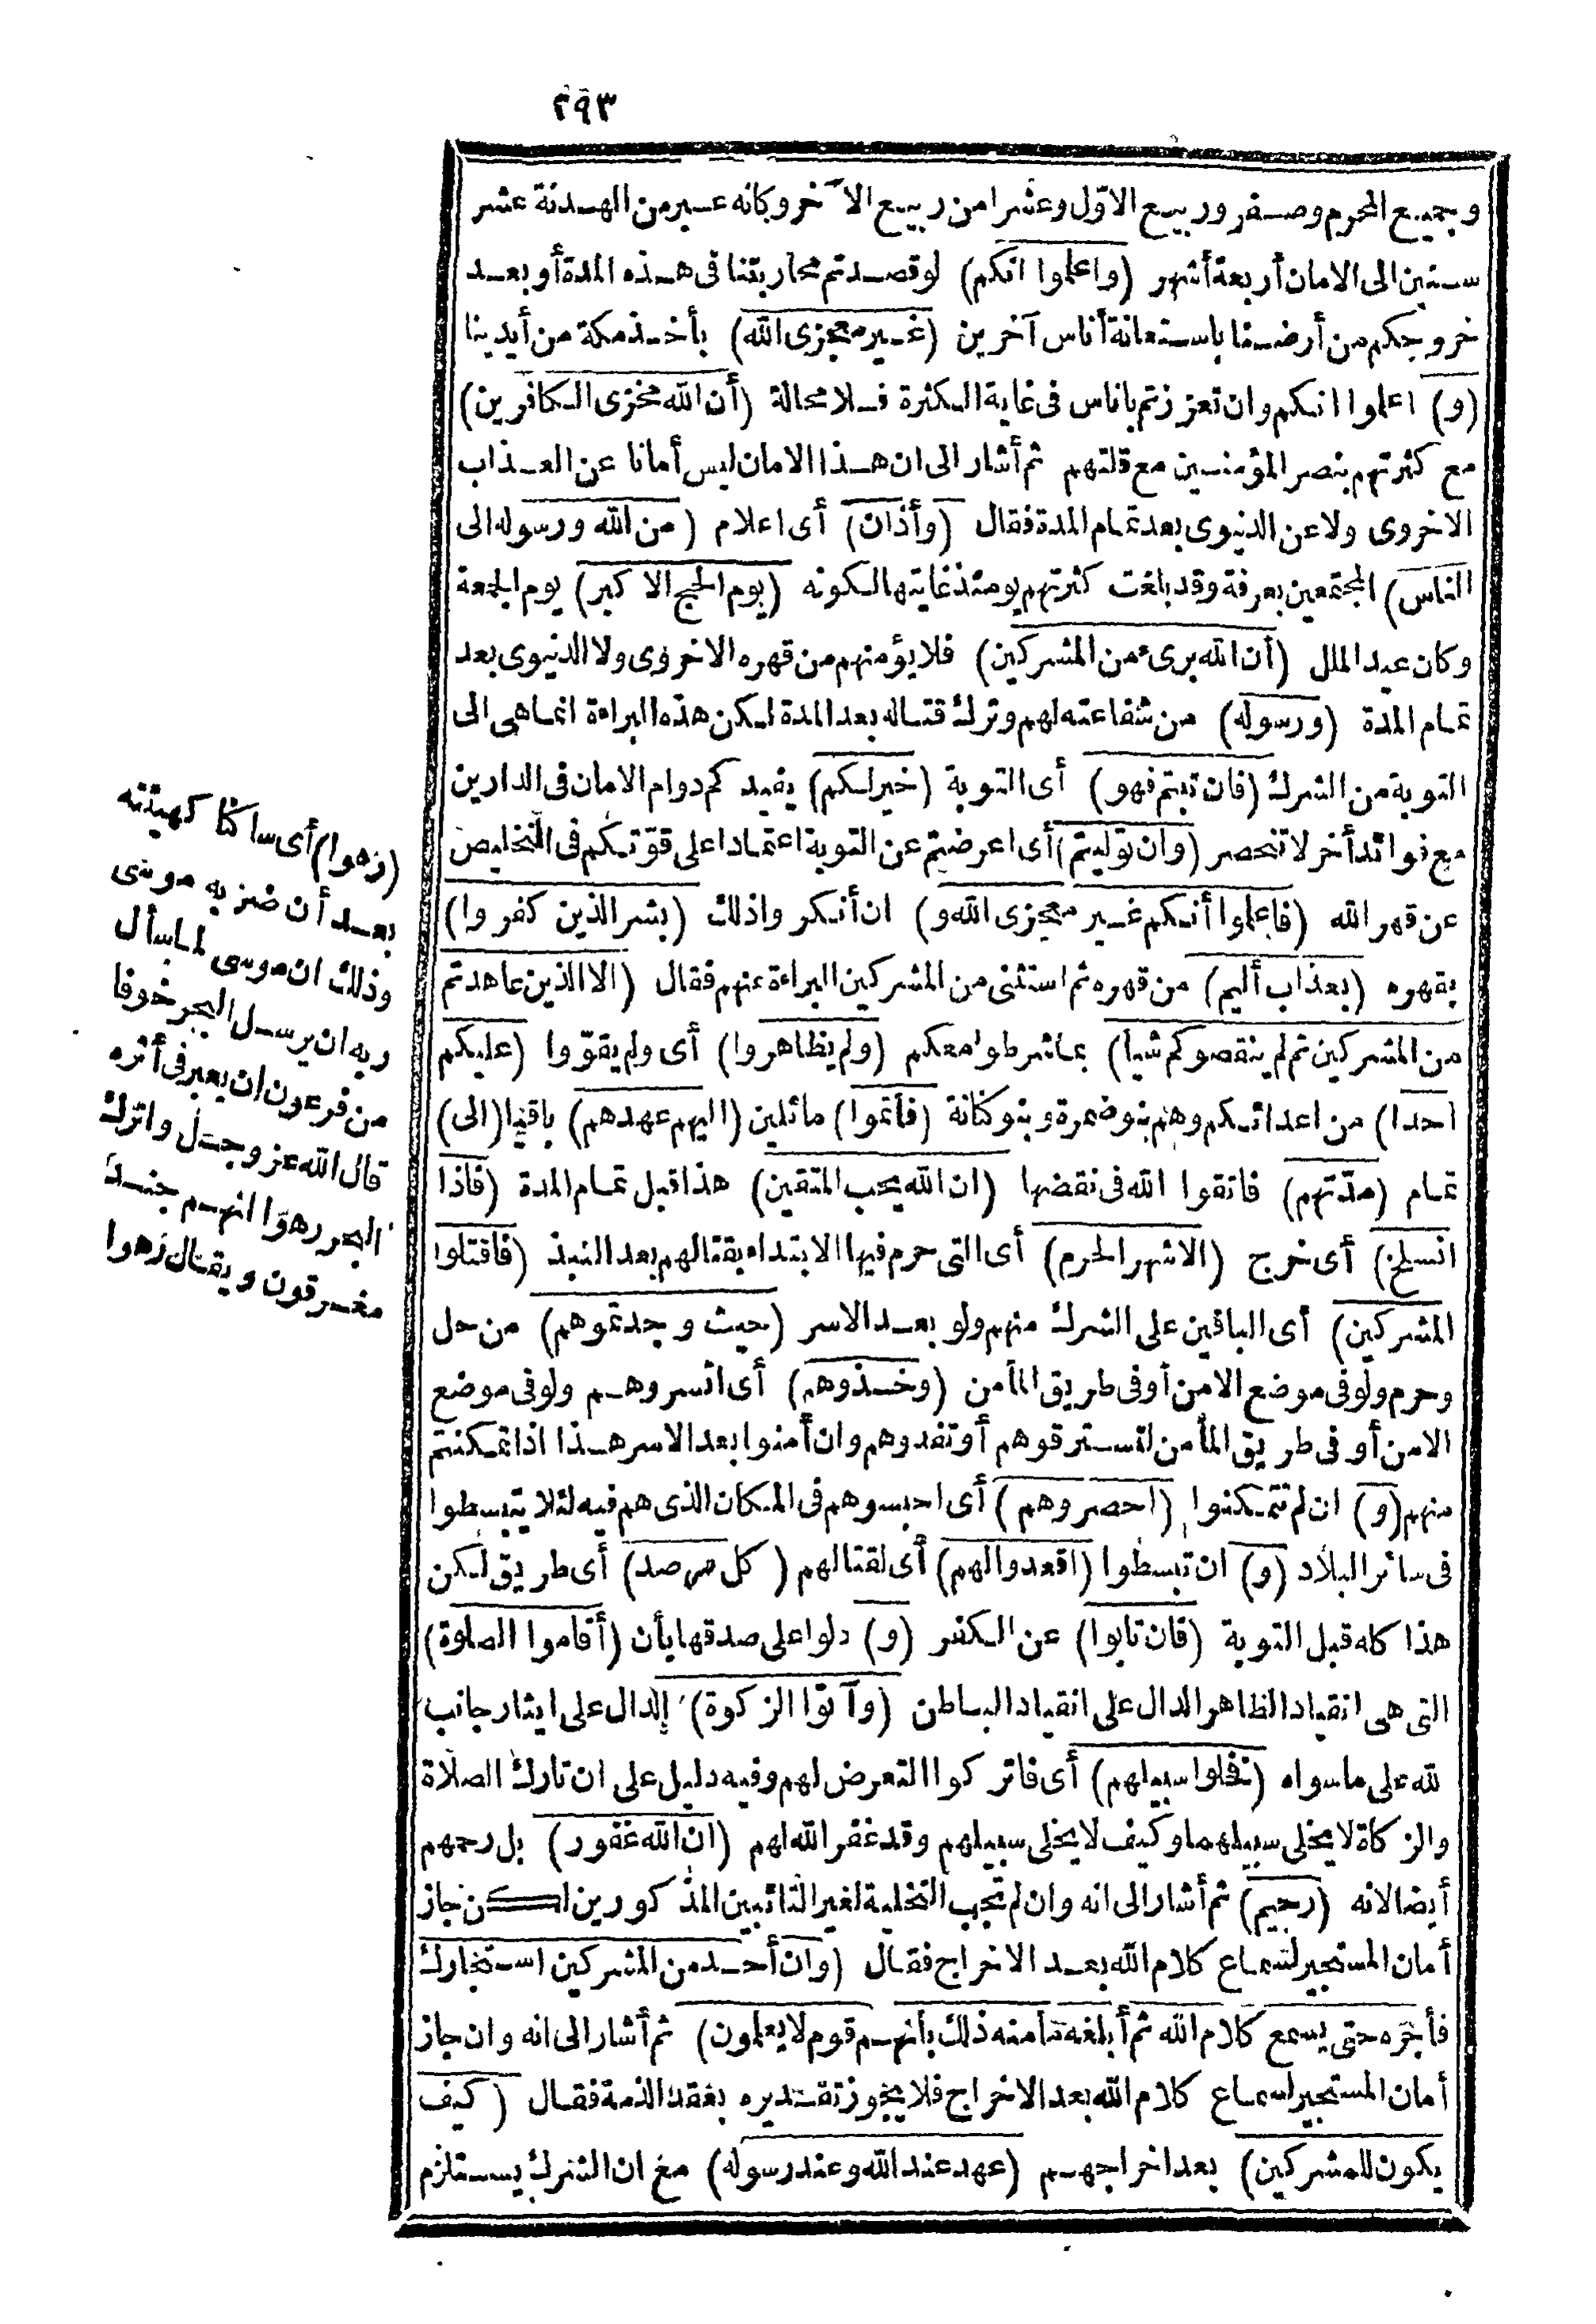 ٢٩٣
وجميع المحرم وصفر وربيع الاوّل وعشرا من ربيع الآخر وكانه عبر من الهدنة عشر
سنين الى الامان أربعة أشهر (واعلموا انكم) لو قصدتم محاربتنا فى هذه المدة أو بعد
خروجكم من أرضنا باستعانة أناس آخرين (غير معجزى الله) بأخذ مكة من أيدينا
(و) اعلموا انكم وان تعززتم باناس فى غاية الكثرة فلا محالة (أن الله مخزى الكافرين)
مع كثرتهم بنصر المؤمنين مع قلتهم ثم أشار الى ان هذا الامان ليس أمانا عن العذاب
الاخروى ولا عن الدنيوى بعد تمام المدة فقال (وأذان) أى اعلام (من الله ورسوله الى
الناس) المجتمعين بعرفة وقد بلغت كثرتهم يومئذ غايتها لكونه (يوم الحج الاكبر) يوم الجمعة
وكان عيد الملل (أن الله برىء من المشركين) فلا يؤمنهم من قهره الاخروى ولا الدنيوى بعد
تمام المدة (ورسوله) من شفاعته لهم وترك قتاله بعد المدة لكن هذه البراءة انما هى الى
التوبة من الشرك (فان تبتم فهو) أى التوبة (خير لكم) يفيدكم دوام الامان فى الدارين
مع فوائد أخر لا تنحصر (وان توليتم) أى اعرضتم عن التوبة اعتمادا على قوّتكم فى التخليص
عن قهر الله (فاعلموا أنكم غير معجزى الله و) ان أنكروا ذلك (بشر الذين كفروا)
بقهره (بعذاب أليم) من قهره ثم استثنى من المشركين البراءة عنهم فقال (الا الذين عاهدتم
من المشركين ثم لم ينقصوكم شيأ) مما شرطوا معكم (ولم يظاهروا) أى ولم يقوّوا (عليكم
أحدا) من اعدائكم وهم بنو ضمرة وبنو كنانة (فأتموا) مائلين (اليهم عهدهم) باقيا (الى)
تمام (مدّتهم) فاتقوا الله فى نقضها (ان الله يحب المتقين) هذا قبل تمام المدة (فاذا
انسلخ) أى خرج (الاشهر الحرم) أى التى حرم فيها الابتداء بقتالهم بعد النبذ (فاقتلوا
المشركين) أى الباقين على الشرك منهم ولو بعد الاسر (حيث وجدتموهم) من حل
وحرم ولو فى موضع الامن أو فى طريق المأمن (وخذوهم) أى ائسروهم ولو فى موضع
الامن أو فى طريق المأمن لتسترقوهم أو تفدوهم وان أمنوا بعد الاسر هذا اذا تمكنتم
منهم (و) ان لم تتمكنوا (احصروهم) أى احبسوهم فى المكان الذى هم فيه لئلا يتبسطوا
فى سائر البلاد (و) ان تبسطوا (اقعدوا لهم) أى لقتالهم (كل مرصد) أى طريق لكن
هذا كله قبل التوبة (فان تابوا) عن الكفر (و) دلوا على صدقها بأن (أقاموا الصلوة)
التى هى انقياد الظاهر الدال على انقياد الباطن (وآتوا الزكوة) الدال على ايثار جانب
لله على ما سواه (فخلوا سبيلهم) أى فاتركوا التعرض لهم وفيه دليل على ان تارك الصلاة
والزكاة لا يخلى سبيلهما وكيف لا يخلى سبيلهم وقد غفر الله لهم (ان الله غفور) بل رحمهم
أيضا لانه (رحيم) ثم أشار الى انه وان لم تجب التخلية لغير التائبين المذكورين لكن جاز
أمان المستجير لسماع كلام الله بعد الاخراج فقال (وان أحد من المشركين استجارك
فأجره حتى يسمع كلام الله ثم أبلغه مأمنه ذلك بأنهم قوم لا يعلمون) ثم أشار الى انه وان جاز
أمان المستجير لسماع كلام الله بعد الاخراج فلا يجوز تقديره بعقد الذمة فقال (كيف
يكون للمشركين) بعد اخراجهم (عهد عند الله وعند رسوله) مع ان الشرك يستلزم
(رهوا) أى ساكنا كهيئته
بعد أن ضربه موسى
وذلك ان موسى لما سأل
ربه ان يرسل البحر خوفا
من فرعون ان يعبر فى أثره
قال الله عز وجل واترك
البحر رهوا انهم جند
مغرقون ويقال رهوا